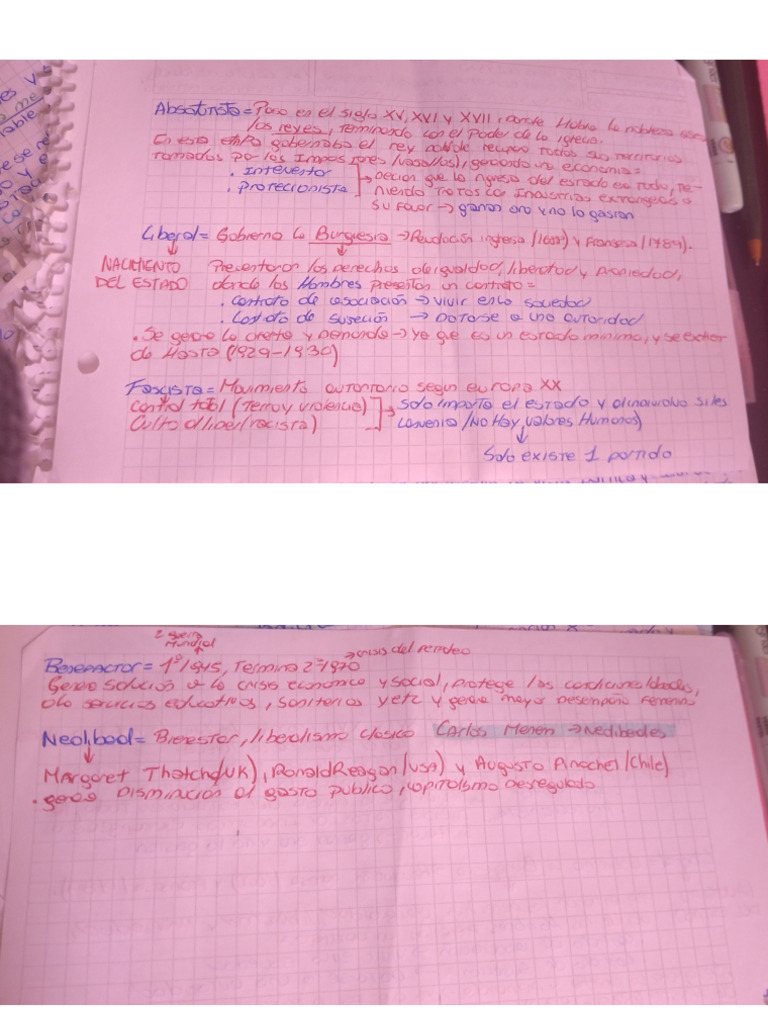 Absolutista = Paso en el siglo XV, XVI y XVII, donde Hubo la nobleza
los reyes, terminando con el Poder de la iglesia.
En esta etapa gobernaba el rey donde recupero Todos sus territorios
tomados por los (vasallos), generando una economia =
. Interventor
. protecionista
decian que la ngresa del estado es todo, te-
niendo tratos con Industrias extrangeras a
su favor → ganan oro y no lo gastan
Liberal = Gobierno la Burguesia → Revolución inglesa (1688) y Francesa (1789).
NACIMIENTO
DEL ESTADO
Presentaron los derechos de igualdad, libertad y propiedad,
donde los Hombres presentan un contrato =
. Contrato de asociación → vivir en la sociedad
. Contrato de sujeción → Dotarse a una autoridad
. Se genero la oferta y demanda → ya que es un estado minimo, y se
de Hasta (1929-1930)
Fascista = Movimiento autoritario según europa XX
control total (Terror y violencia)
Culto al lider (racista)
Solo importa el estado y al individuo si les
convenia (No Hay valores Humanos)
Solo existe 1 partido
2 guerra
Mundial
→ crisis del petroleo
Benefactor = 1º 1945, Termina 2º 1970
Genero solución a la crisis económica y social, protege las condiciones
servicios educativos, sanitarios y etc y genera mayor desempeño femenino
Neoliberal = Bienestar, liberalismo clasico Carlos Menem → Neoliberales
Margaret Thatcher (UK), Ronald Reagan (USA) y Augusto Pinochet (Chile)
. genero Disminucion al gasto publico, capitalismo desregulado